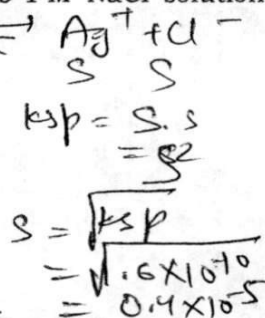 1 M NaCl solution
→ Ag⁺ + Cl⁻
S S
Ksp = S.s
= S²
S = √Ksp
= √1.6×10⁻¹⁰
= 0.4×10⁻⁵